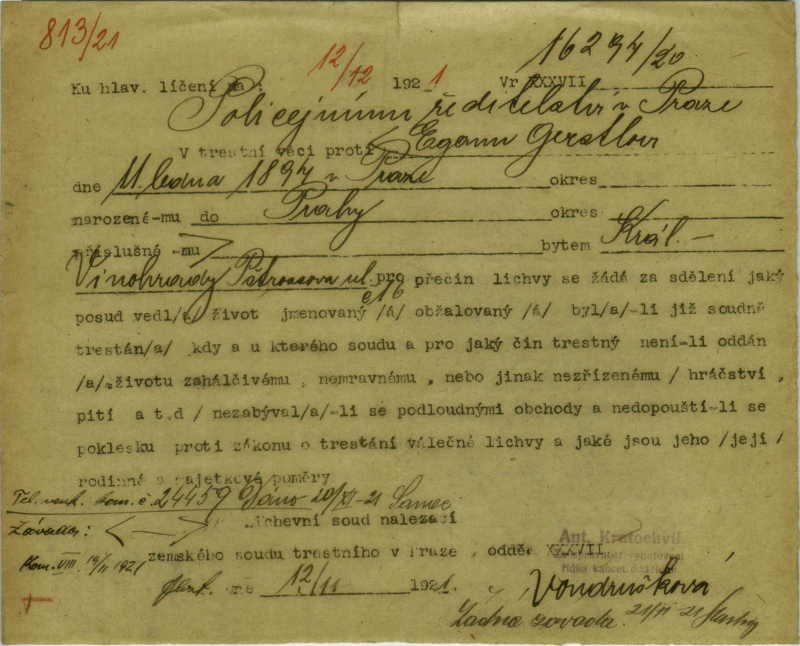 813/21
16294/20
12/12
Ku hlav. líčení na : 1921 Vr XXXVII
Policejnímu ředitelství v Praze
V trestní věci proti Egonu Gerstlovi
dne 11. ledna 1897 v Praze okres
narozené-mu do Prahy okres
příslušné -mu bytem Král. -
Vinohrady Petrosova ul. pro přečin lichvy se žádá za sdělení jaký
č 16
posud vedl/a/ život jmenovaný /á/ obžalovaný /á/ byl/a/-li již soudně
trestán/a/ kdy a u kterého soudu a pro jaký čin trestný není-li oddán
/a/ životu zahálčivému , nemravnému , nebo jinak nezřízenému / hráčství ,
pití a t.d / nezabýval/a/-li se podloudnými obchody a nedopouští-li se
poklesku proti zákonu o trestání válečné lichvy a jaké jsou jeho /její /
rodinné a majetkové poměry
č. 24459 Dáno 20/XI-21
Závada: Lichevní soud nalezací
Ant. Kratochvíl
zemského soudu trestního v Praze , odděl XXXVII
Kom. VIII. 19/11 1921
dne 12/11 1921.
Vondrušková
Žádná závada. 21/11 21